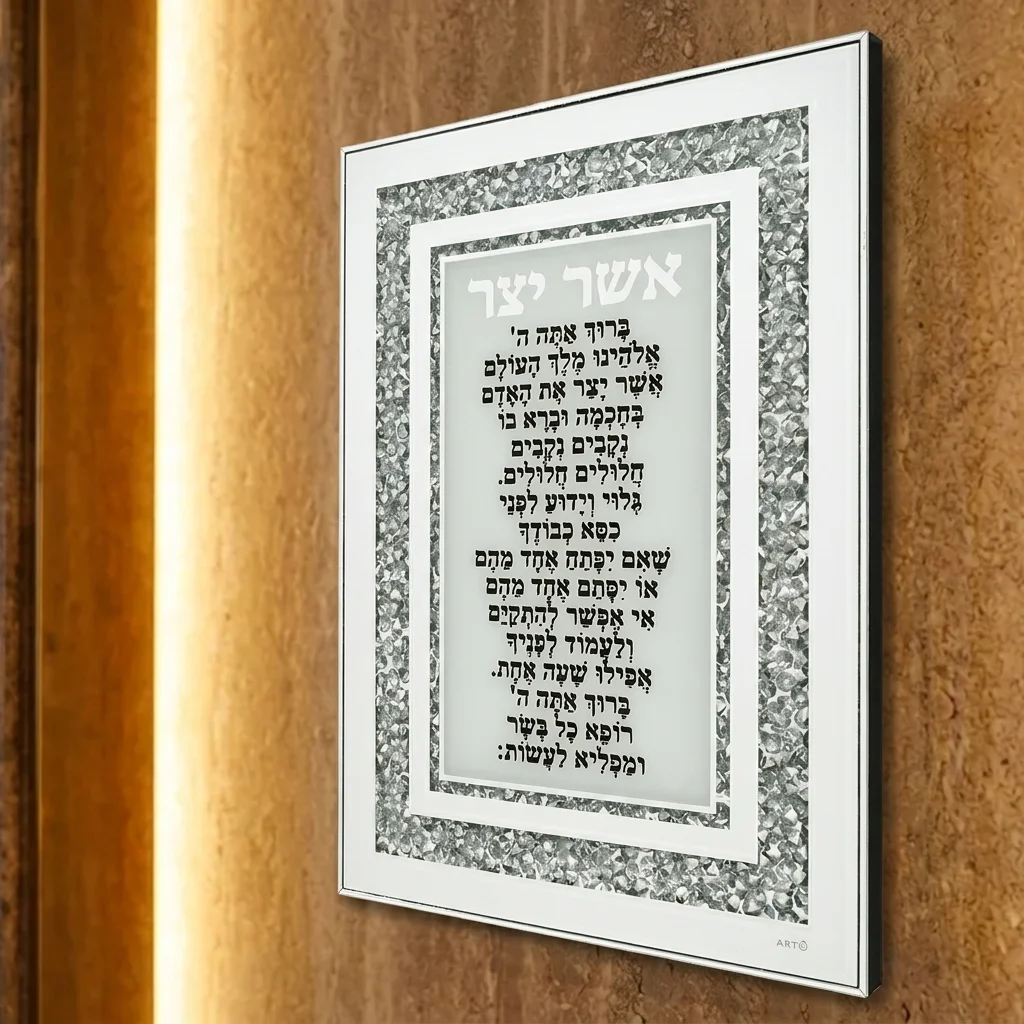 אשר יצר
בָּרוּךְ אַתָּה ה'
אֱלֹהֵינוּ מֶלֶךְ הָעוֹלָם
אֲשֶׁר יָצַר אֶת הָאָדָם
בְּחָכְמָה וּבָרָא בוֹ
נְקָבִים נְקָבִים
חֲלוּלִים חֲלוּלִים.
גָּלוּי וְיָדוּעַ לִפְנֵי
כִסֵּא כְבוֹדֶךָ
שֶׁאִם יִפָּתֵחַ אֶחָד מֵהֶם
אוֹ יִסָּתֵם אֶחָד מֵהֶם
אִי אֶפְשַׁר לְהִתְקַיֵּם
וְלַעֲמוֹד לְפָנֶיךָ
אֲפִילוּ שָׁעָה אֶחָת.
בָּרוּךְ אַתָּה ה'
רוֹפֵא כָל בָּשָׂר
וּמַפְלִיא לַעֲשׂוֹת:
ART©